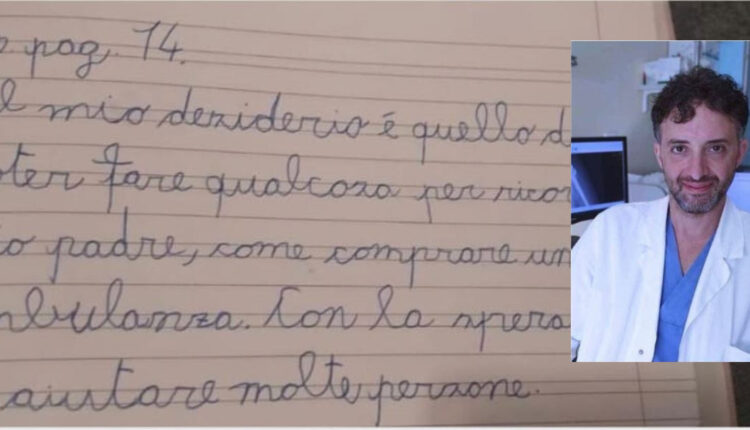 o pag. 14.
l mio desiderio é quello d
oter fare qualcosa per ricor
io padre, come comprare un
mbulanza. Con la spera
aiutare molte persone.